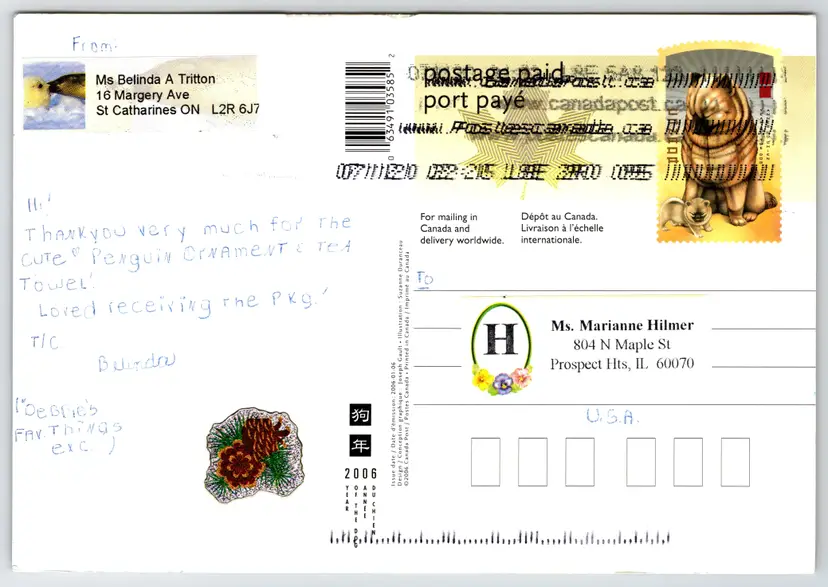 From:
Ms Belinda A Tritton
16 Margery Ave
St Catharines ON L2R 6J7
Hi!
Thankyou very much for the
cute ♡ Penguin Ornament & Tea
Towel!
Loved receiving the Pkg!
T/C
Belinda
("Debbie's
Fav. Things
exc.)
0 63491 03585 2
postage paid
port payé
www.canadapost.ca
www.postescanada.ca
For mailing in
Canada and
delivery worldwide.
Dépôt au Canada.
Livraison à l'échelle
internationale.
To
H
Ms. Marianne Hilmer
804 N Maple St
Prospect Hts, IL 60070
U.S.A.
Issue date / Date d'émission: 2006.01.06
Design / Conception graphique: Joseph Gault • Illustration: Suzanne Duranceau
©2006 Canada Post / Postes Canada • Printed in Canada / Imprimé au Canada
狗
年
2006
YEAR OF THE DOG
ANNÉE DU CHIEN